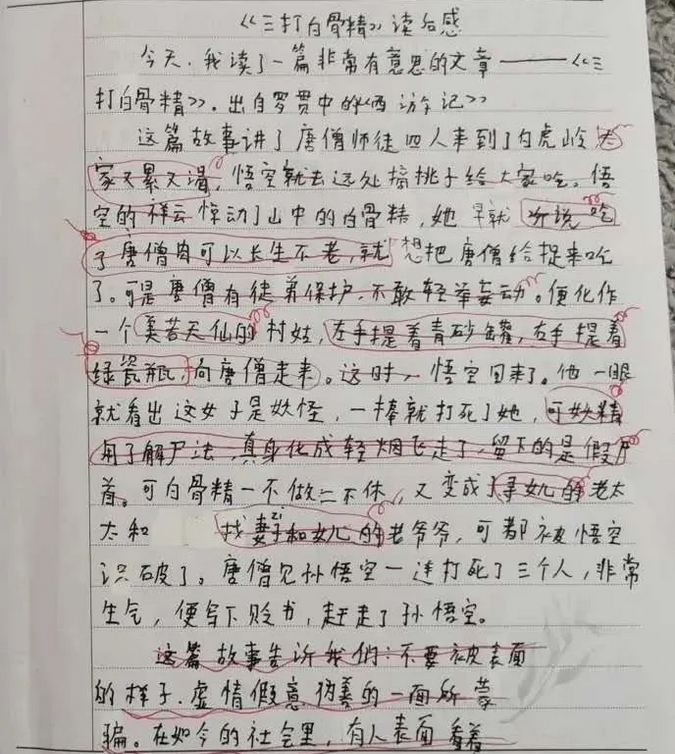 《三打白骨精》读后感
今天,我读了一篇非常有意思的文章——《三
打白骨精》。出自罗贯中的《西游记》
这篇故事讲了唐僧师徒四人来到了白虎岭,大
家又累又渴,悟空就去远处摘桃子给大家吃。悟
空的祥云惊动了山中的白骨精,她早就听说吃
了唐僧肉可以长生不老,就想把唐僧给捉来吃
了。可是唐僧有徒弟保护,不敢轻举妄动。便化作
一个美若天仙的村姑,左手提着青砂罐,右手提着
绿瓷瓶,向唐僧走来。这时,悟空回来了。他一眼
就看出这女子是妖怪,一棒就打死了她,可妖精
用了解尸法,真身化成轻烟飞走了,留下的是假尸
首。可白骨精一不做二不休,又变成了寻女儿的老太
太和 找妻子和女儿的老爷爷,可都被悟空
zi
识破了。唐僧见孙悟空一连打死了三个人,非常
生气,便写下贬书,赶走了孙悟空。
这篇故事告诉我们:不要被表面
的样子、虚情假意伪善的一面所蒙
骗。在如今的社会里,有人表面看着